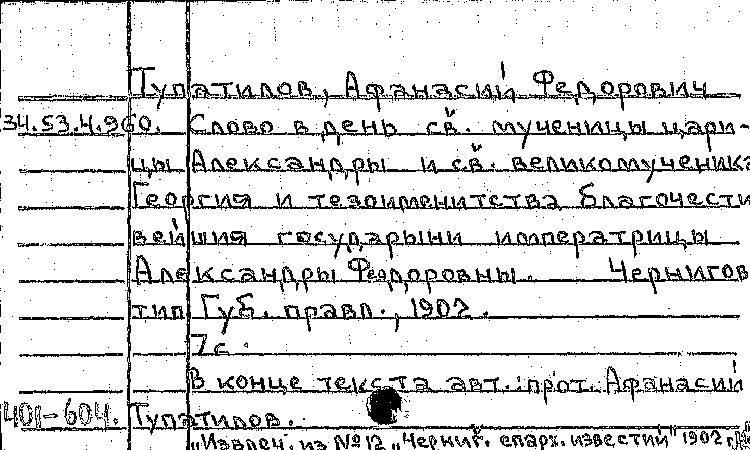 Тупатилов, Афанасий Федорович
34.53.4.960. Слово в день св. мученицы цари-
цы Александры и св. великомученика
Георгия и тезоименитства благочести
вейшия государыни императрицы
Александры Феодоровны. Чернигов
тип Губ. правл., 1902.
7 с.
В конце текста авт.: прот. Афанасий
401-604. Тупатилов.
"Извлеч. из №12 „Черниг. епарх. известий" 1902 г.